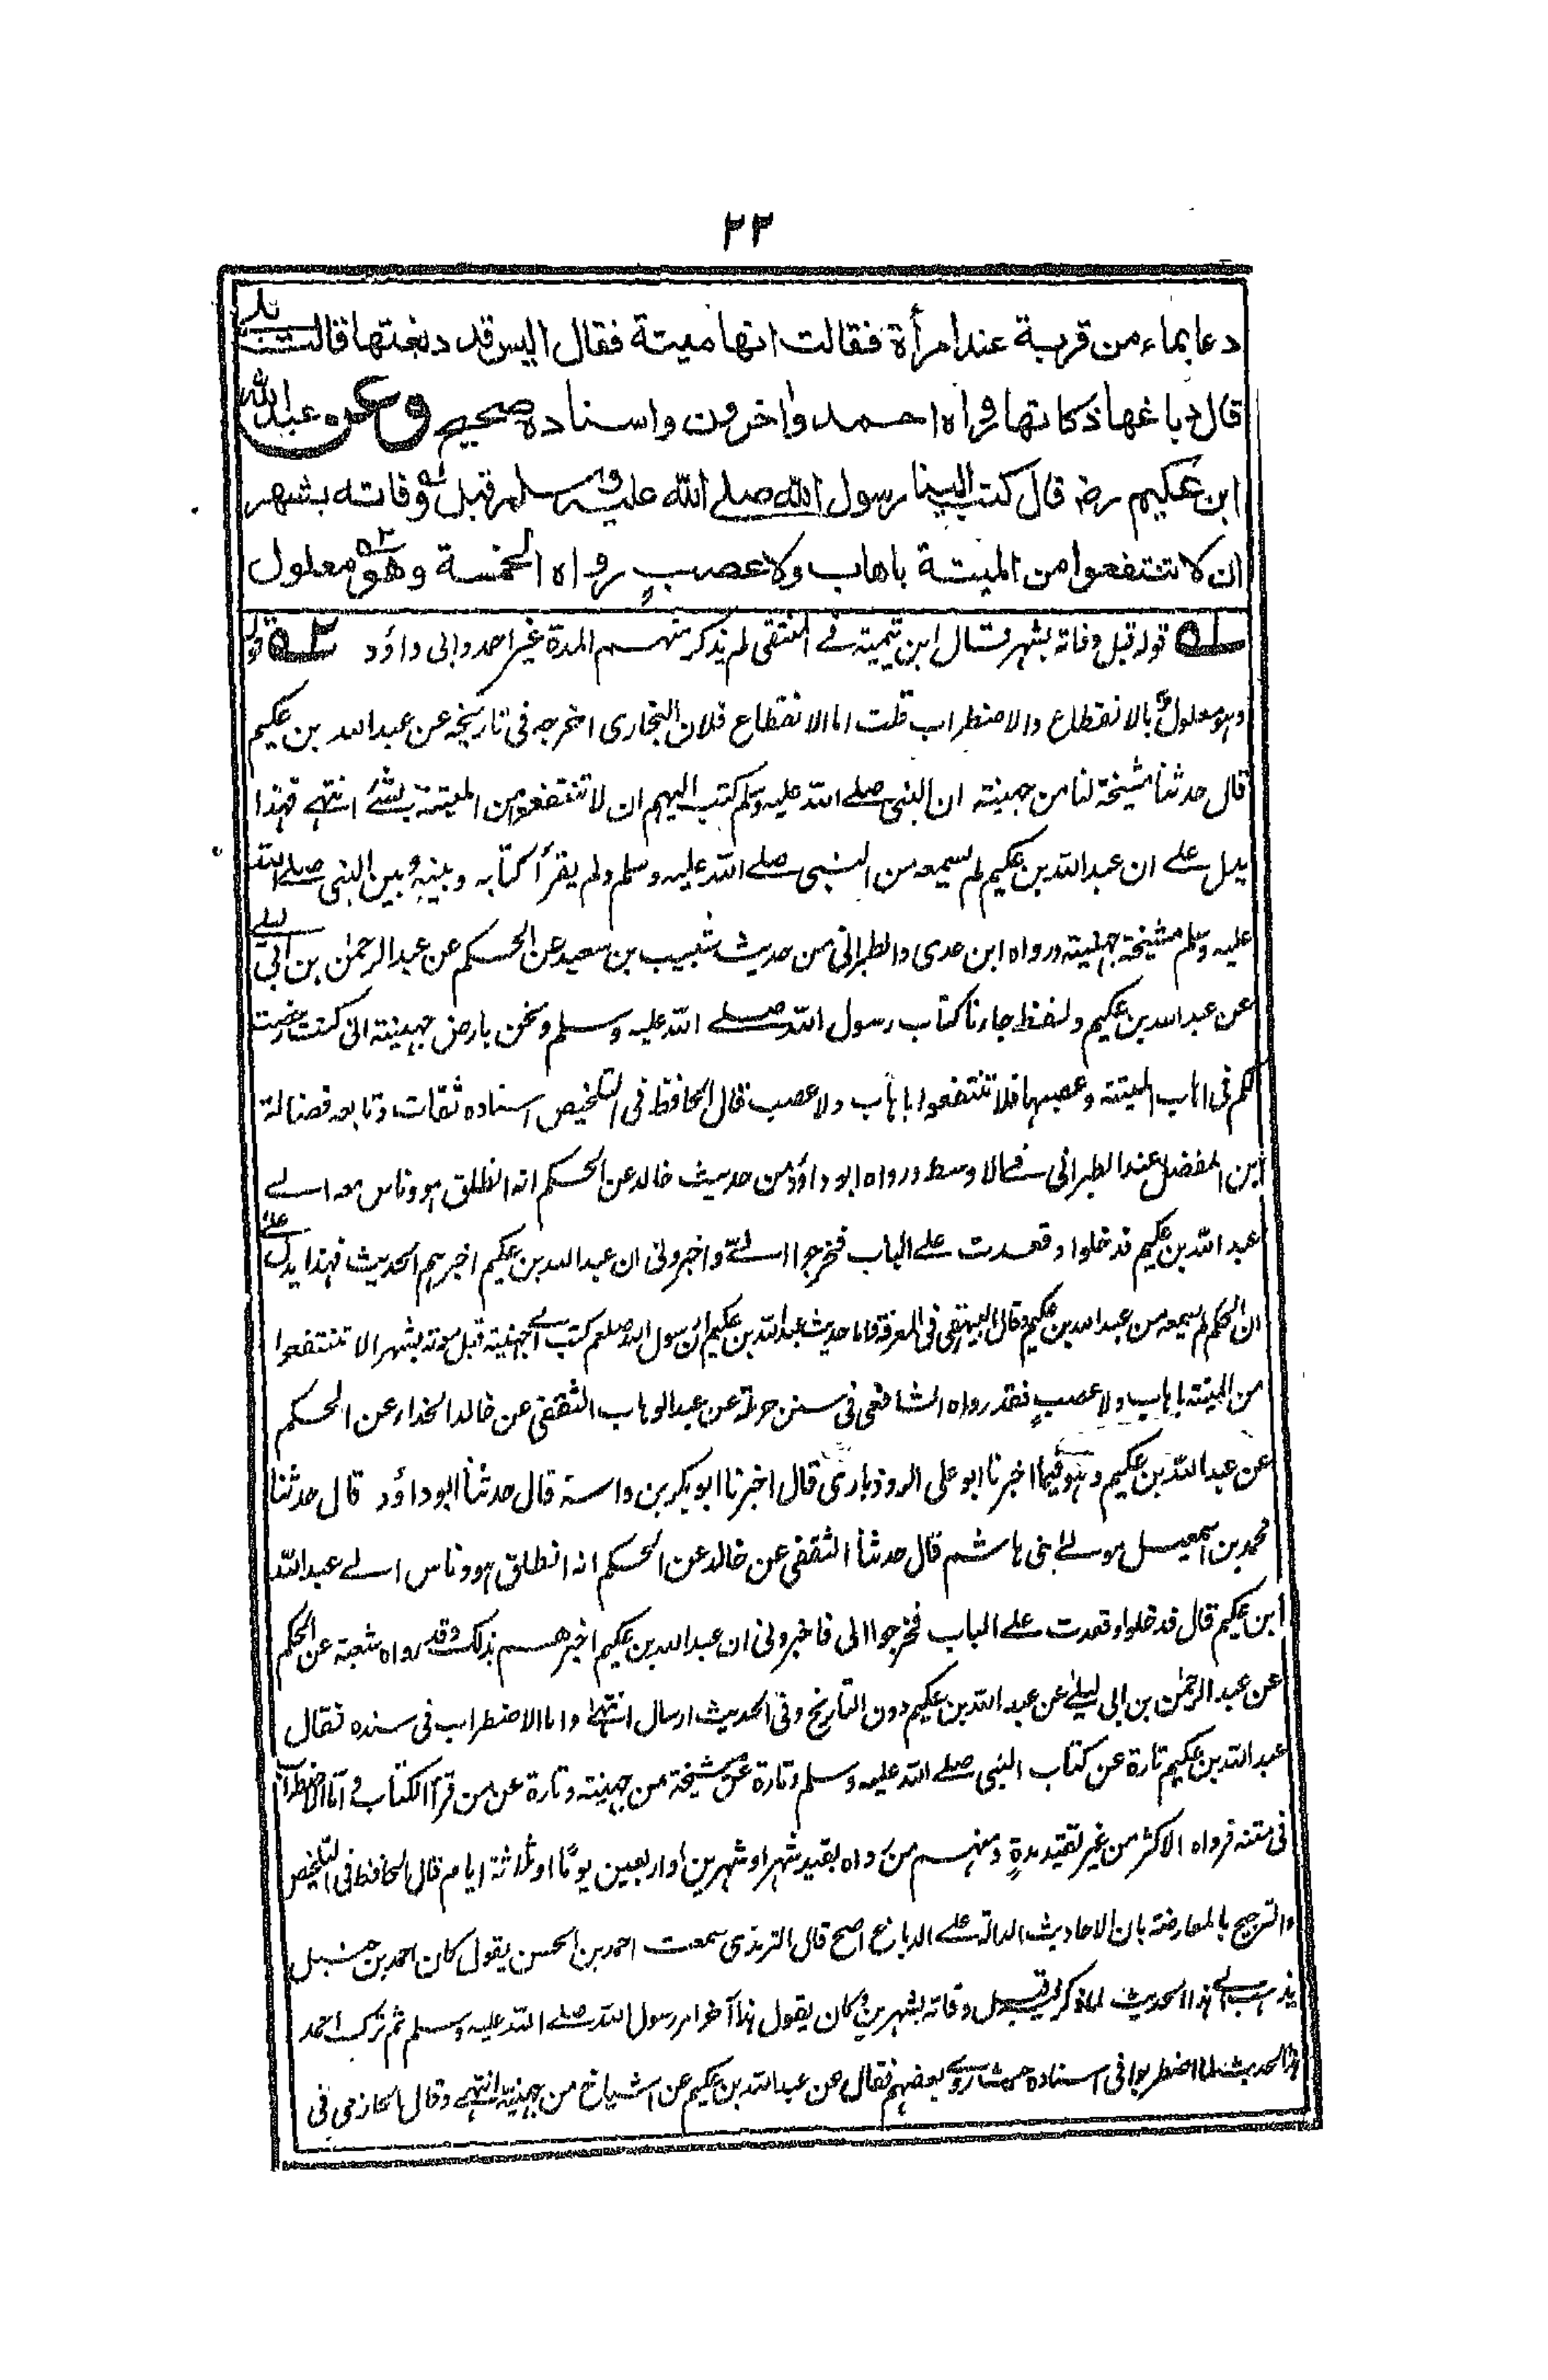 ٢٣
دعا بماء من قربة عند امرأة فقالت انها ميتة فقال اليس قد دبغتها قالت بلى
قال دباغها ذكاتها رواه احمد واخرون واسناده صحيح وعن عبد الله
ابن عكيم رضـ قال كتب الينا رسول الله صلے الله عليه وسلم قبل وفاته بشهر
ان لا تنتفعوا من الميتة باهاب ولا عصبٍ رواه الخمسة وهو معلول
ا؎ قوله قبل وفاته بشهر قال ابن تيمية فے المنتقى لم يذكر منهم المدة غير احمد وابى داؤد ٢؎ قوله
وهو معلول بالانقطاع والاضطراب قلت اما الانقطاع فلان البخارى اخرجه فى تاريخه عن عبد الله بن عكيم
قال حدثنا مشيخة لنا من جهينة ان النبى صلے الله عليه وسلم كتب اليهم ان لا تنتفعوا من الميتة بشئ انتهے فهذا
يدل علے ان عبد الله بن عكيم لم يسمعه من النبى صلے الله عليه وسلم ولم يقرأ كتابه وبينه وبين النبى صلے الله
عليه وسلم مشيخة جهينة ورواه ابن عدى والطبرانى من حديث شبيب بن سعيد عن الحكم عن عبد الرحمٰن بن ابى ليلے
عن عبد الله بن عكيم ولفظه جاءنا كتاب رسول الله صلے الله عليه وسلم ونحن بارض جهينة انى كنت رخصت
لكم فى اهاب الميتة وعصبها فلا تنتفعوا باهاب ولا عصب قال الحافظ فى التلخيص اسناده ثقات وتابعه فضالة
ابن المفضل عند الطبرانى فے الاوسط ورواه ابو داؤد من حديث خالد عن الحكم انه انطلق هو وناس معه الے
عبد الله بن عكيم فدخلوا وقعدت علے الباب فخرجوا الےّ واخبرونى ان عبد الله بن عكيم اخبرهم الحديث فهذا يدل علے
ان الحكم لم يسمعه من عبد الله بن عكيم وقال البيهقى فى المعرفة واما حديث عبد الله بن عكيم ان رسول الله صلعم كتب الے جهينة قبل موته بشهر ان لا تنتفعوا
من الميتة باهاب ولا عصبٍ فقد رواه الشافعى فى سنن حرملة عن عبد الوهاب الثقفى عن خالد الحذاء عن الحكم
عن عبد الله بن عكيم وهو فيما اخبرنا ابو على الروذبارى قال اخبرنا ابو بكر بن داسة قال حدثنا ابو داؤد قال حدثنا
محمد بن اسمعيل مولے بنى هاشم قال حدثنا الثقفى عن خالد عن الحكم انه انطلق هو وناس الے عبد الله
ابن عكيم قال فدخلوا وقعدت علے الباب فخرجوا الى فاخبرونى ان عبد الله بن عكيم اخبرهم بذلك وقد رواه شعبة عن الحكم
عن عبد الرحمٰن بن ابى ليلے عن عبد الله بن عكيم دون التاريخ وفى الحديث ارسال انتهےٰ واما الاضطراب فى سنده فقال
عبد الله بن عكيم تارة عن كتاب النبى صلے الله عليه وسلم وتارة عن مشيخة من جهينة وتارة عن من قرأ الكتاب واما الاضطراب
فى متنه فرواه الاكثر من غير تقييد مدةٍ ومنهم من رواه بقيد شهر او شهرين او اربعين يومًا او ثلاثة ايام قال الحافظ فى التلخيص
والترجيح بالمعارضة بان الاحاديث الدالة علے الدباغ اصح قال الترمذى سمعت احمد بن الحسن يقول كان احمد بن حنبل
يذهب الے هذا الحديث لما ذكر فيه قبل وفاته بشهرين وكان يقول هذا آخر امر رسول الله صلے الله عليه وسلم ثم ترك احمد
هذا الحديث لما اضطربوا فى اسناده حيث روى بعضهم فقال عن عبد الله بن عكيم عن اشياخ من جهينة انتهے وقال الحازمى فى